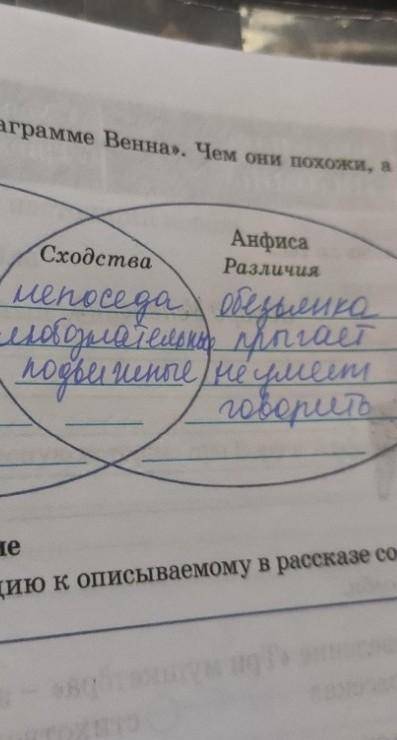 аграмме Венна». Чем они похожи, а
Сходства
непоседа
любознательные
подвижные
Анфиса
Различия
обезьянка
прыгает
не умеет
говорить
ие
цию к описываемому в рассказе со